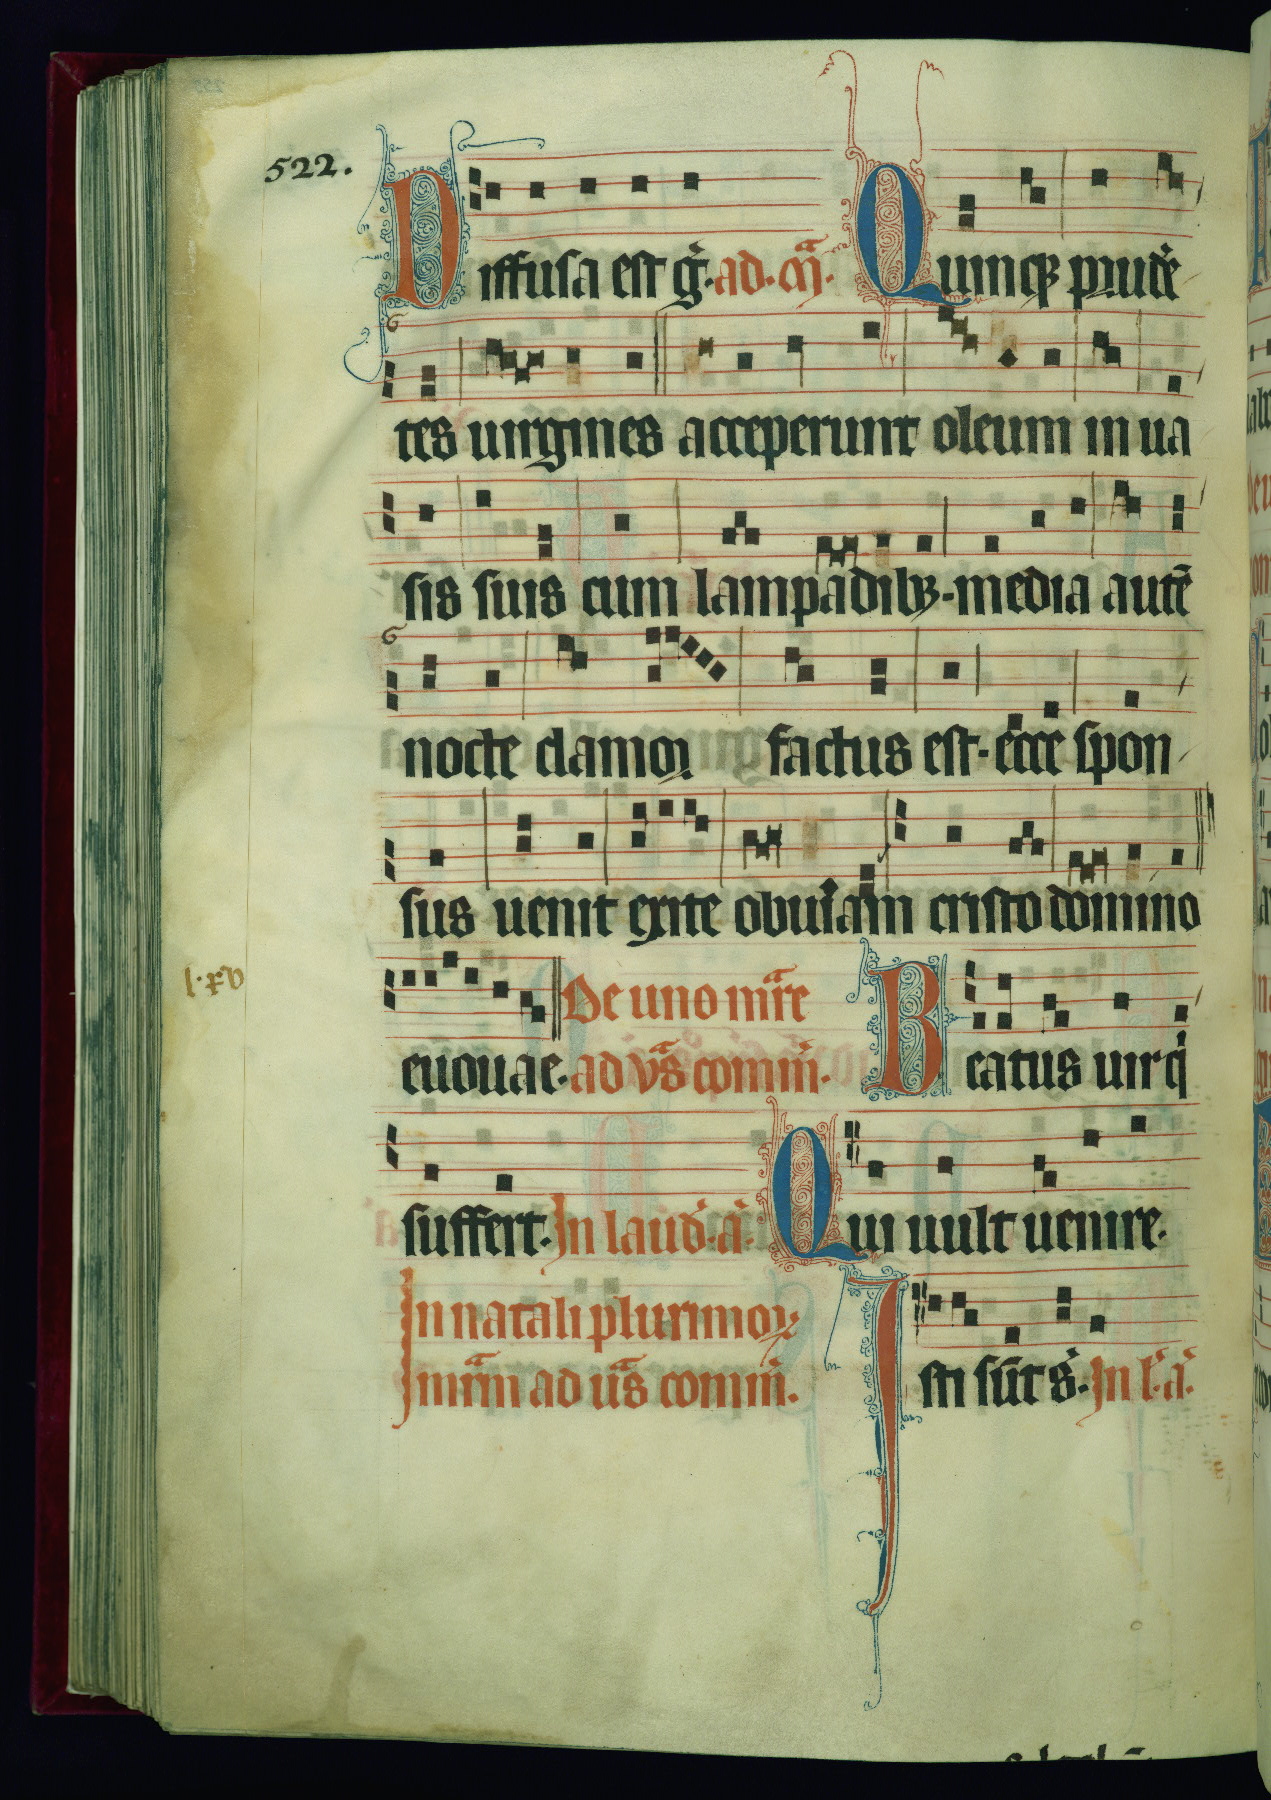 522.
Diffusa est g̃. ad. m̃. Quinqꝫ prudē
tes uirgines acceperunt oleum in ua
sis suis cum lampadibꝫ. media autē
nocte clamor factus est. ecce spon
sus uenit exite obuiam cristo domino
euouae. De uno mr̃e
ad vs̃ comm̃. Beatus uir q̇
suffert. In laud̃. a̅. Qui uult uenire.
In natali plurimoꝝ
mr̃m ad us̃ comm̃. Isti sūt s̃. In l̃. a̅.